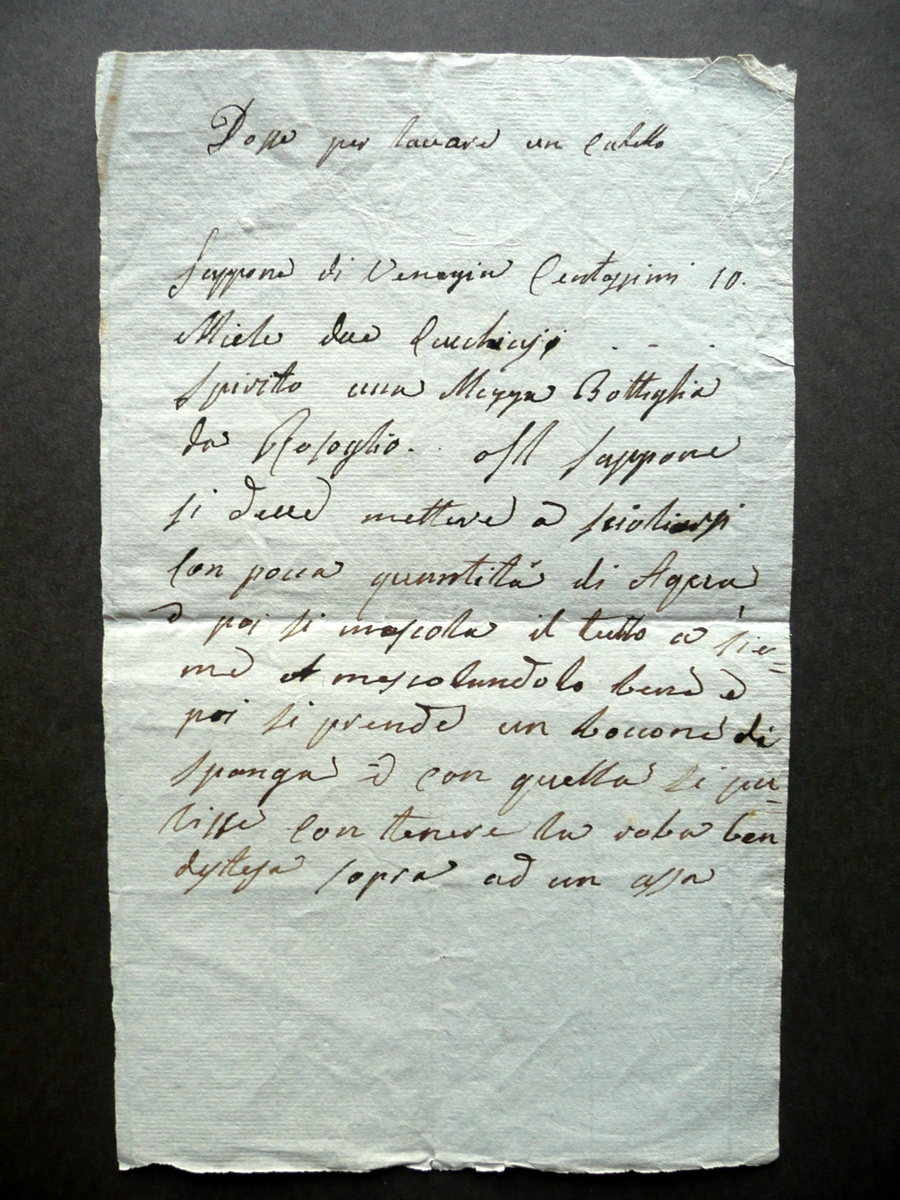 Dosse per lavare un
Sappone di Venezia Centessimi 10.
Miele due Cucchiaj . . .
Spirito una Mezza Bottiglia
da Rosoglio. Il Sappone
si deve mettere a scioliersi
Con pocca quantità di Aqua
e poi si mescola il tutto a sie=
me mescolandolo bene e
poi si prende un boccone di
sponga e con quella si pu=
lisse con tenere la roba ben
dystesa sopra ad un assa